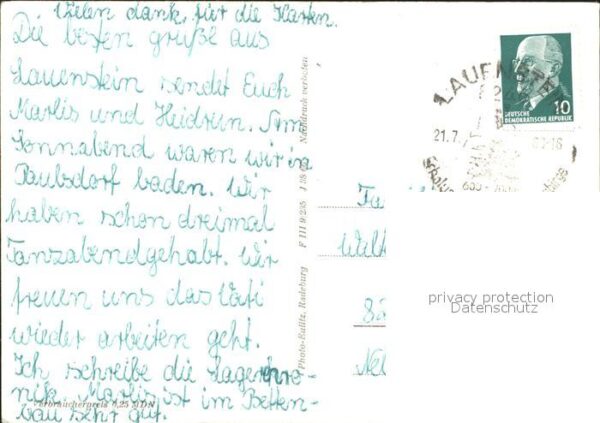 Vielen dank für die Karten.
Die besten grüße aus
Lauenstein sendet Euch
Marlis und Heidrun. Am
Sonnabend waren wir in
Paulsdorf baden. Wir
haben schon dreimal
Tanzabend gehabt. Wir
freuen uns das Vati
wieder arbeiten geht.
Ich schreibe die Lagerchro-
nik. Marlis ist im Betten-
bau sehr gut.
Verbraucherpreis 0,25 MDN
Photo-Kallitz, Radeburg F III 9/235 Nachdruck verboten
LAUENSTE
21.7.
10
DEUTSCHE
DEMOKRATISCHE REPUBLIK
Fa
Walt
privacy protection
Datenschutz